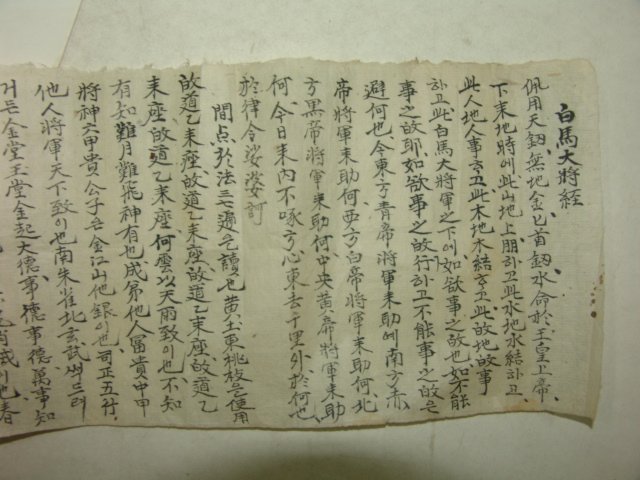 白馬大將経
佩用天釼無地金匕首釼水命於玉皇上帝
下来地時에此山地上朋하고此水地水結하고
此人地人事하고此木地木結하고此故地故事
하고此白馬大將軍之下에如欲事之故也如不能
事之故耶如欲事之故行하고不能事之故은
避何也今東方青帝將軍来助에南方赤
帝將軍来助何西方白帝將軍来助何北
方黒帝將軍来助何中央黄帝將軍来助
何今日来内不啄方心東去千里外於何也
於律令娑婆訶
間点於法三七遍을讀也黄土東桃枝을使用
故道乙来座故道乙来座故道乙来座故道乙
来座故道乙来座何雲以天雨致이也不知
有知難月難飛神有也成第他人冨貴中甲
將神六甲貴公子은金江山他銀이也司正五行
他人將軍天下致이也南朱雀北玄武써드려
거든金堂玉堂金起大德事德事德萬事知